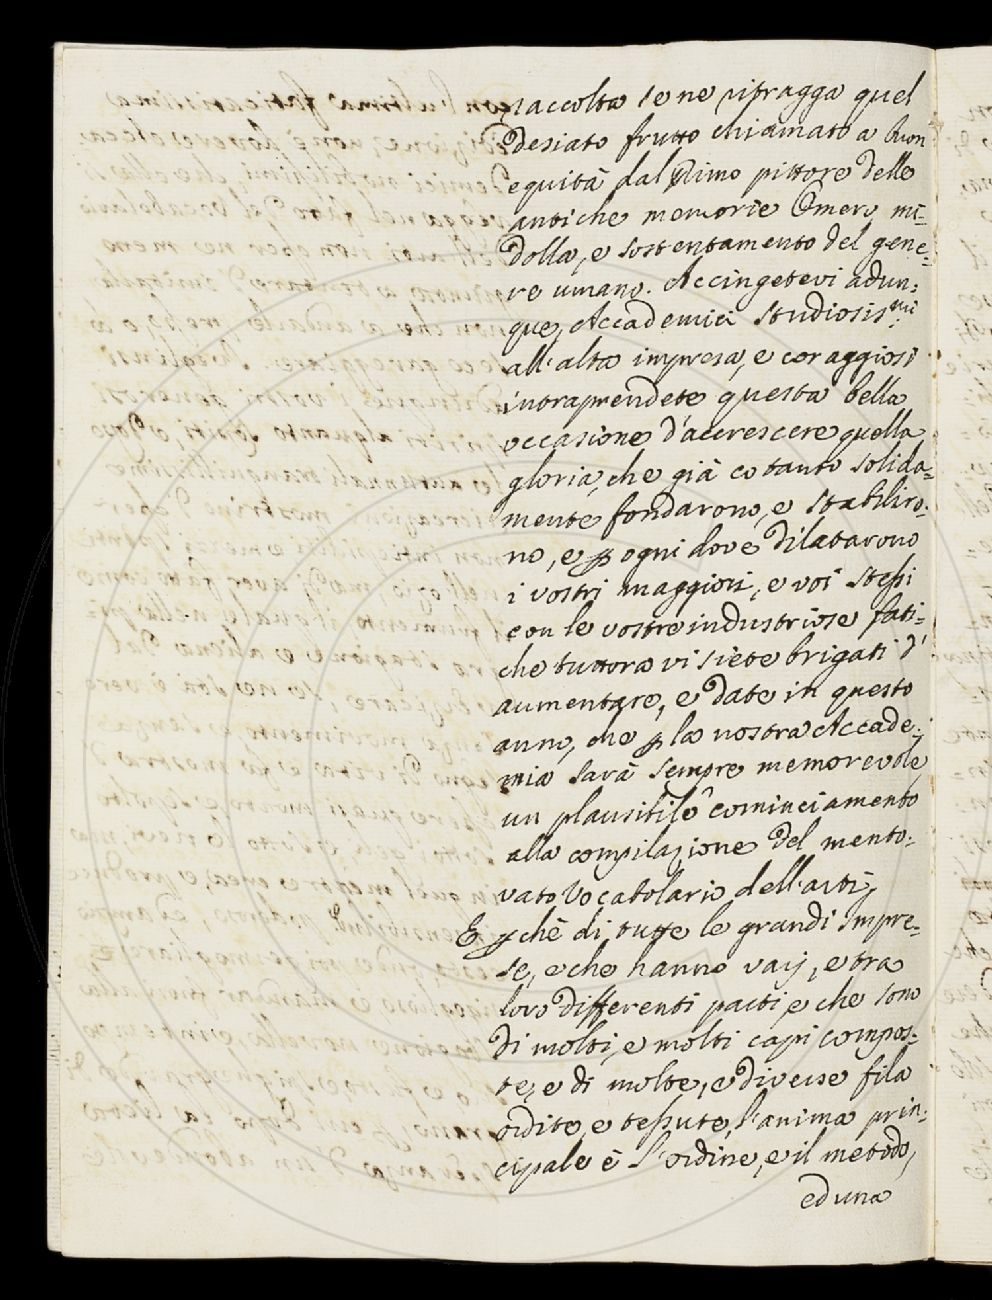 raccolta se ne ritragga quel
desiato frutto chiamato a buon
equità dal Primo pittore delle
antiche memorie Omero, mi=
dolla, e sostentamento del gene=
re umano. Accingetevi adun=
que, Accademici studiosis.mi
all'alta impresa, e coraggiosi
intraprendete questa bella
occasione d'accrescere quella
gloria, che già cotanto solida=
mente fondarono, e stabiliro=
no, e p ogni dove dilatarono
i vostri maggiori, e voi stessi
con le vostre industriose fati=
che tuttora vi siete brigati d'
aumentare, e date in questo
anno, che p la nostra Accade=
mia sarà sempre memorevole,
un plausibile cominciamento
alla compilazione del mento=
vato Vocabolario dell'arti,
E pchè di tutte le grandi impre=
se, e che hanno varj, e tra
loro differenti parti, e che sono
di molti, e molti capi compos=
te, e di molte, e diverse fila
ordite, e tessute, l'anima prin=
cipale è l'ordine, e il metodo,
ed una